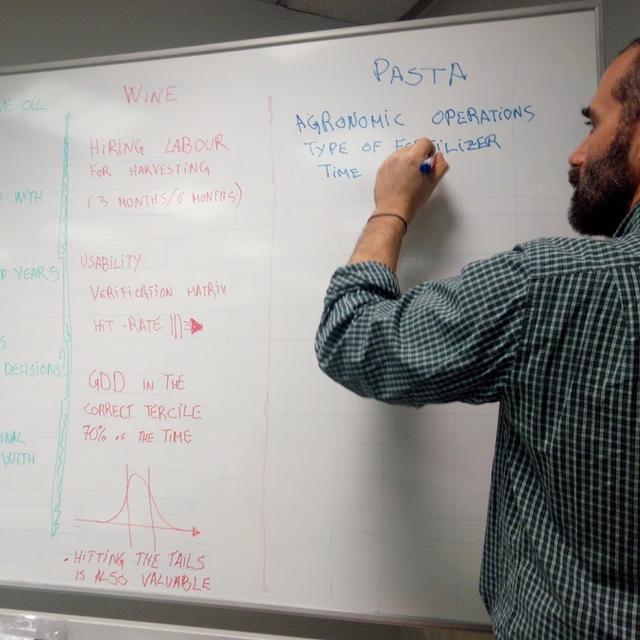 VE-OIL
Y WITH
D YEARS
S
DECISIONS
ONAL
WITH
WINE
HIRING LABOUR
FOR HARVESTING
(3 MONTHS/6 MONTHS)
USABILITY
VERIFICATION MATRIX
HIT-RATE
GDD IN THE
CORRECT TERCILE
70% OF THE TIME
- HITTING THE TAILS
IS ALSO VALUABLE
PASTA
AGRONOMIC OPERATIONS
TYPE OF FERTILIZER
TIME